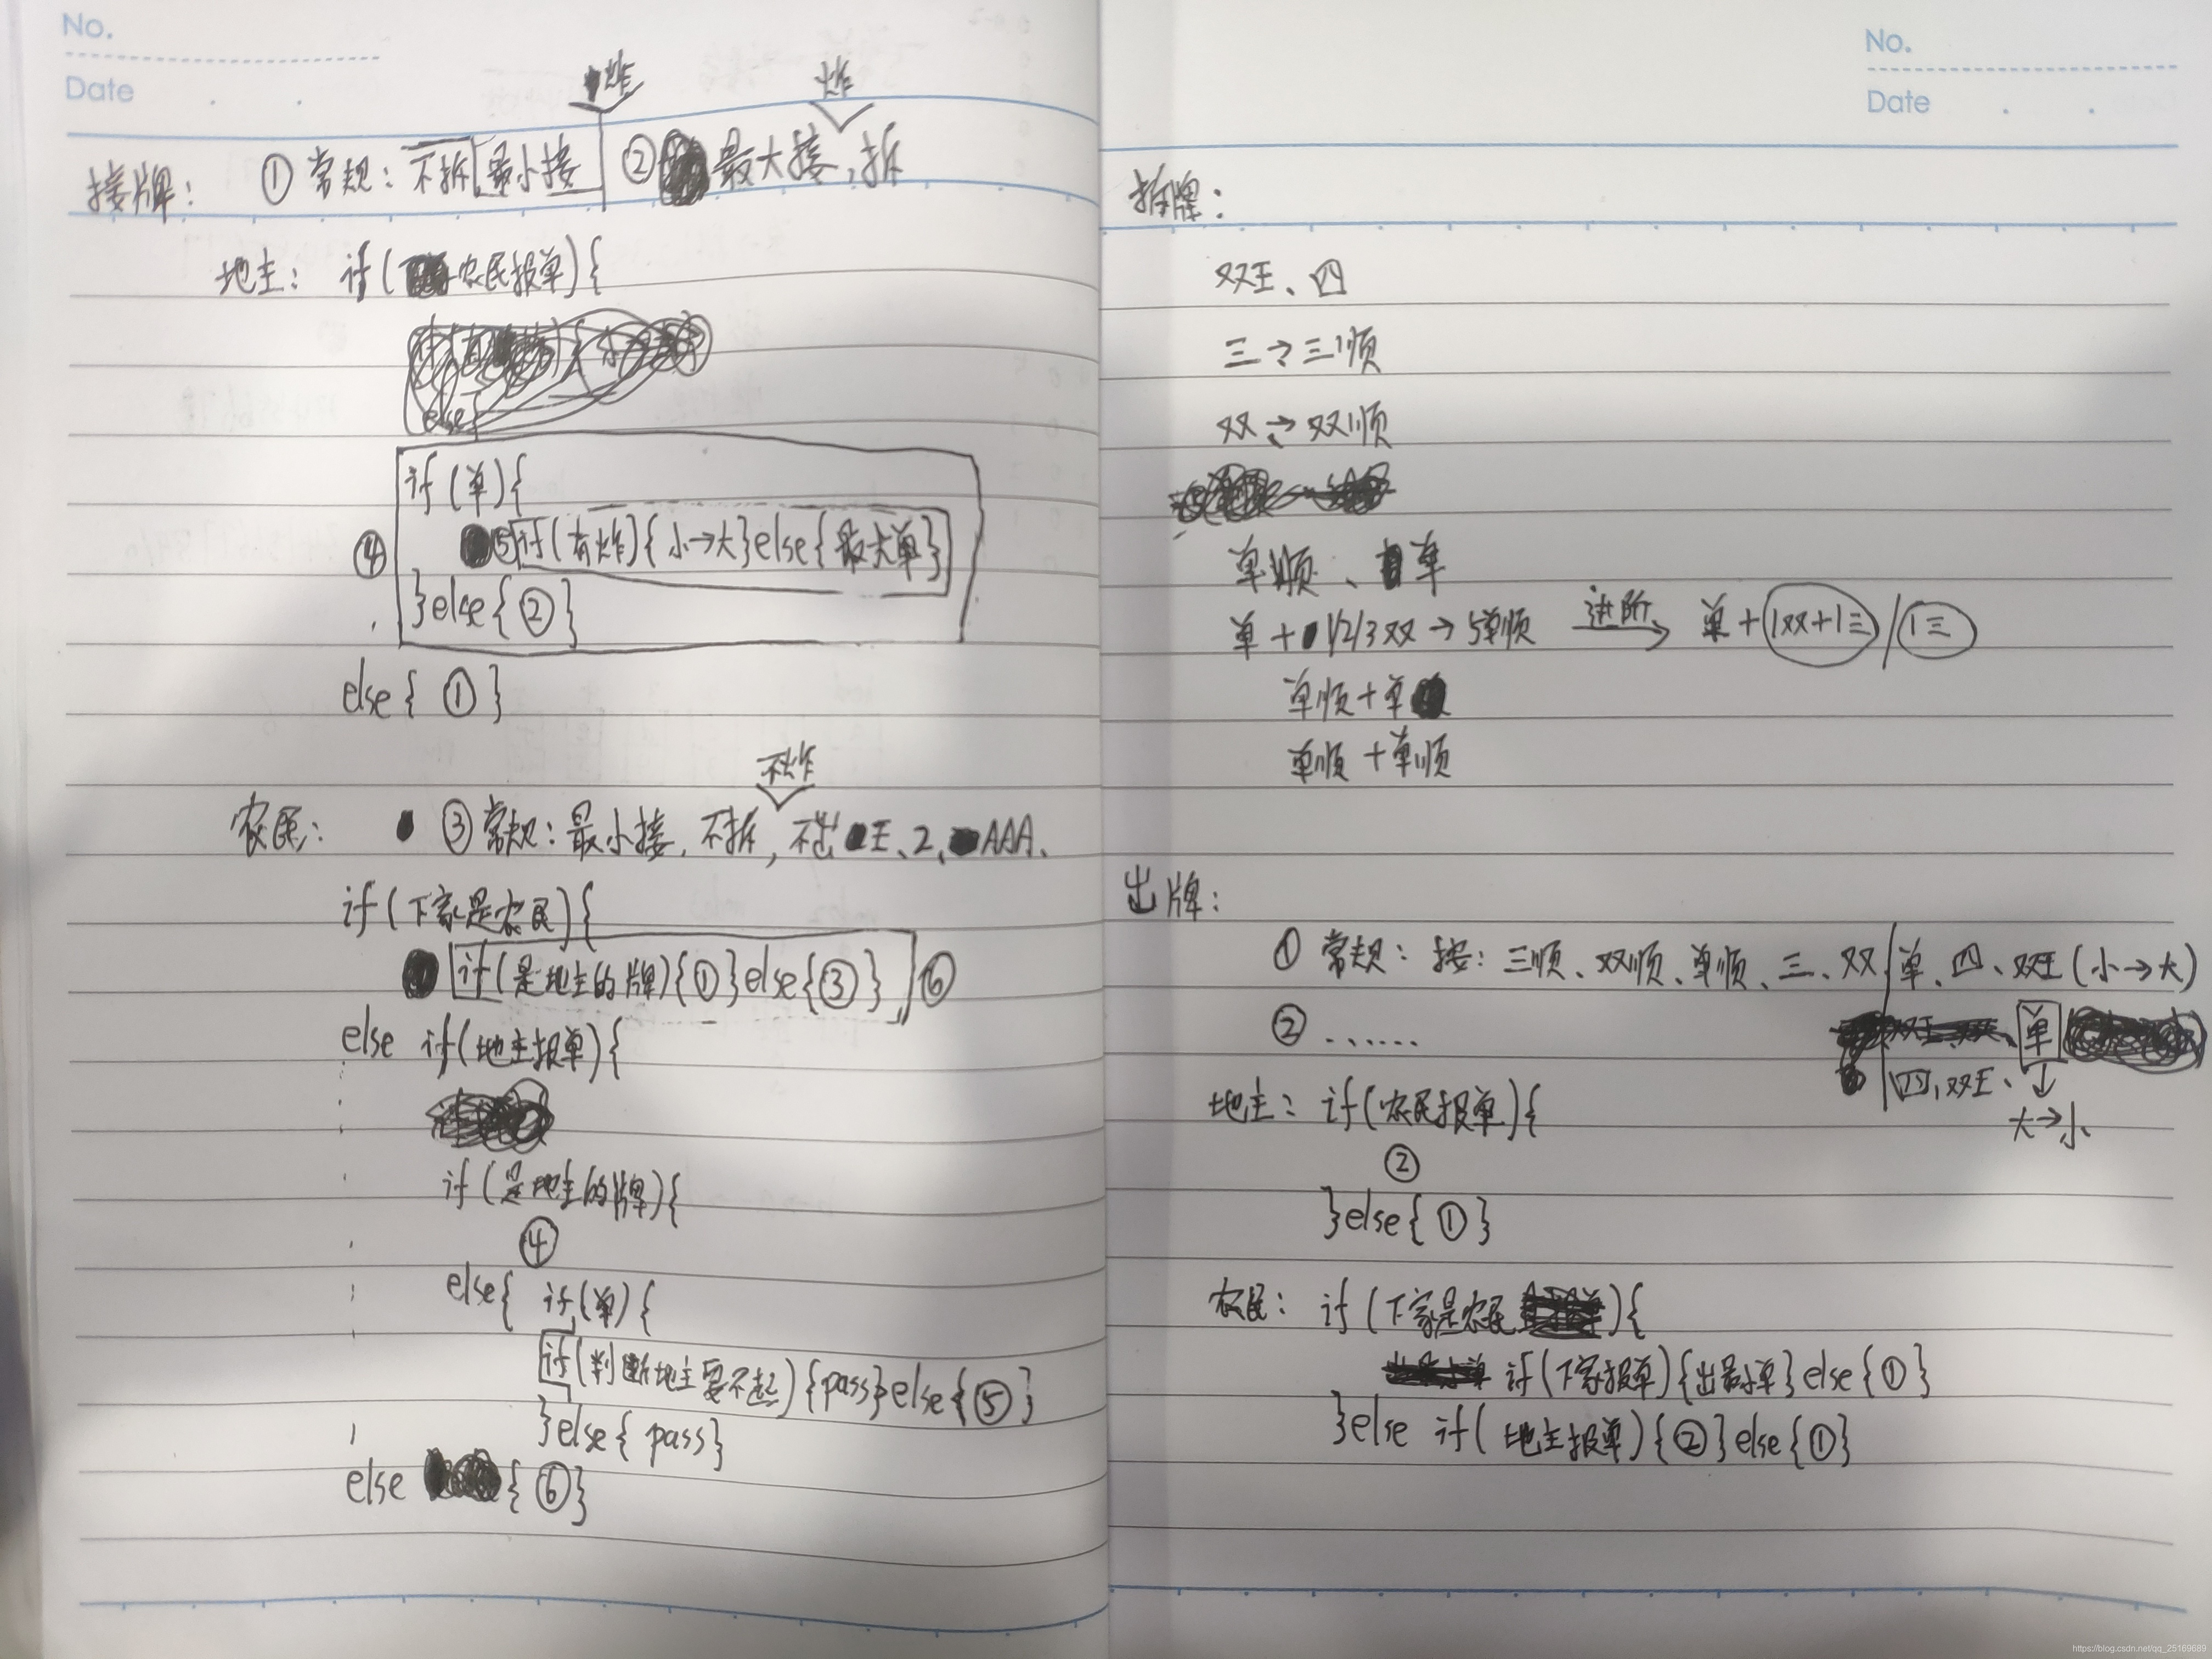 No.
Date
炸 炸
接牌： ① 常规：不拆 最小接 ② 最大接，拆
地主： if(农民报单){
else{
if(单){
④ ⑤ if(有炸){小→大}else{最大单}
}else{②}
else{ ① }
不炸
农民： ③ 常规：最小接，不拆，不出王、2、AAA、
if(下家是农民){
if(是地主的牌){①}else{③} ⑥
else if(地主报单){
if(是地主的牌){
④
else{ if(单){
if(判断地主要不起){pass}else{⑤}
}else{pass}
else {⑥}
No.
Date
拆牌：
双王、四
三→三顺
双→双顺
单顺、单
单+1/2/3双→5单顺 进阶→ 单+1双+1三/1三
单顺+单
单顺+单顺
出牌：
① 常规：按：三顺、双顺、单顺、三、双 单、四、双王(小→大)
② ...... 单
四、双王、↓
地主： if(农民报单){ 大→小
②
}else{①}
农民： if(下家是农民){
if(下家报单){出最小单}else{①}
}else if(地主报单){②}else{①}
https://blog.csdn.net/qq_25169689